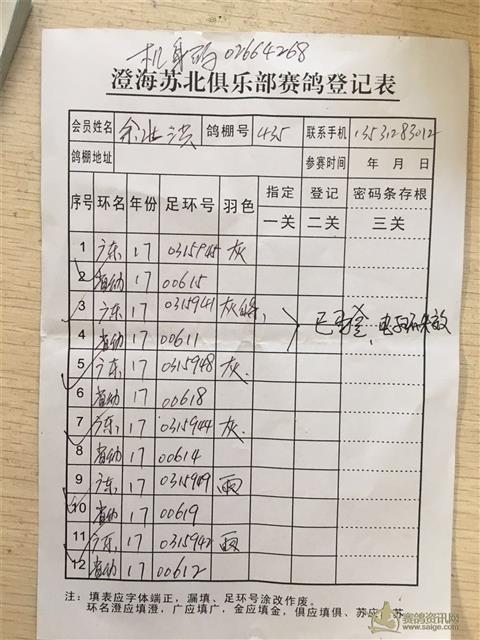 机身码02664268
澄海苏北俱乐部赛鸽登记表
会员姓名 余 鸽棚号 435 联系手机 13531283012
鸽棚地址 参赛时间 年 月 日
序号 环名 年份 足环号 羽色 指定 登记 密码条存根
一关 二关 三关
1 广东 17 0315945 灰
2 省动 17 00615
3 广东 17 0315941 灰
4 省动 17 00611
5 广东 17 0315948 灰
6 省动 17 00618
7 广东 17 0315944 灰
8 省动 17 00614
9 广东 17 0315909 雨
10 省动 17 00619
11 广东 17 0315942 雨
12 省动 17 00612
注：填表应字体端正，漏填、足环号涂改作废。
环名澄应填澄，广应填广，金应填金，俱应填俱、苏应 苏
赛鸽资讯网
www.saige.com